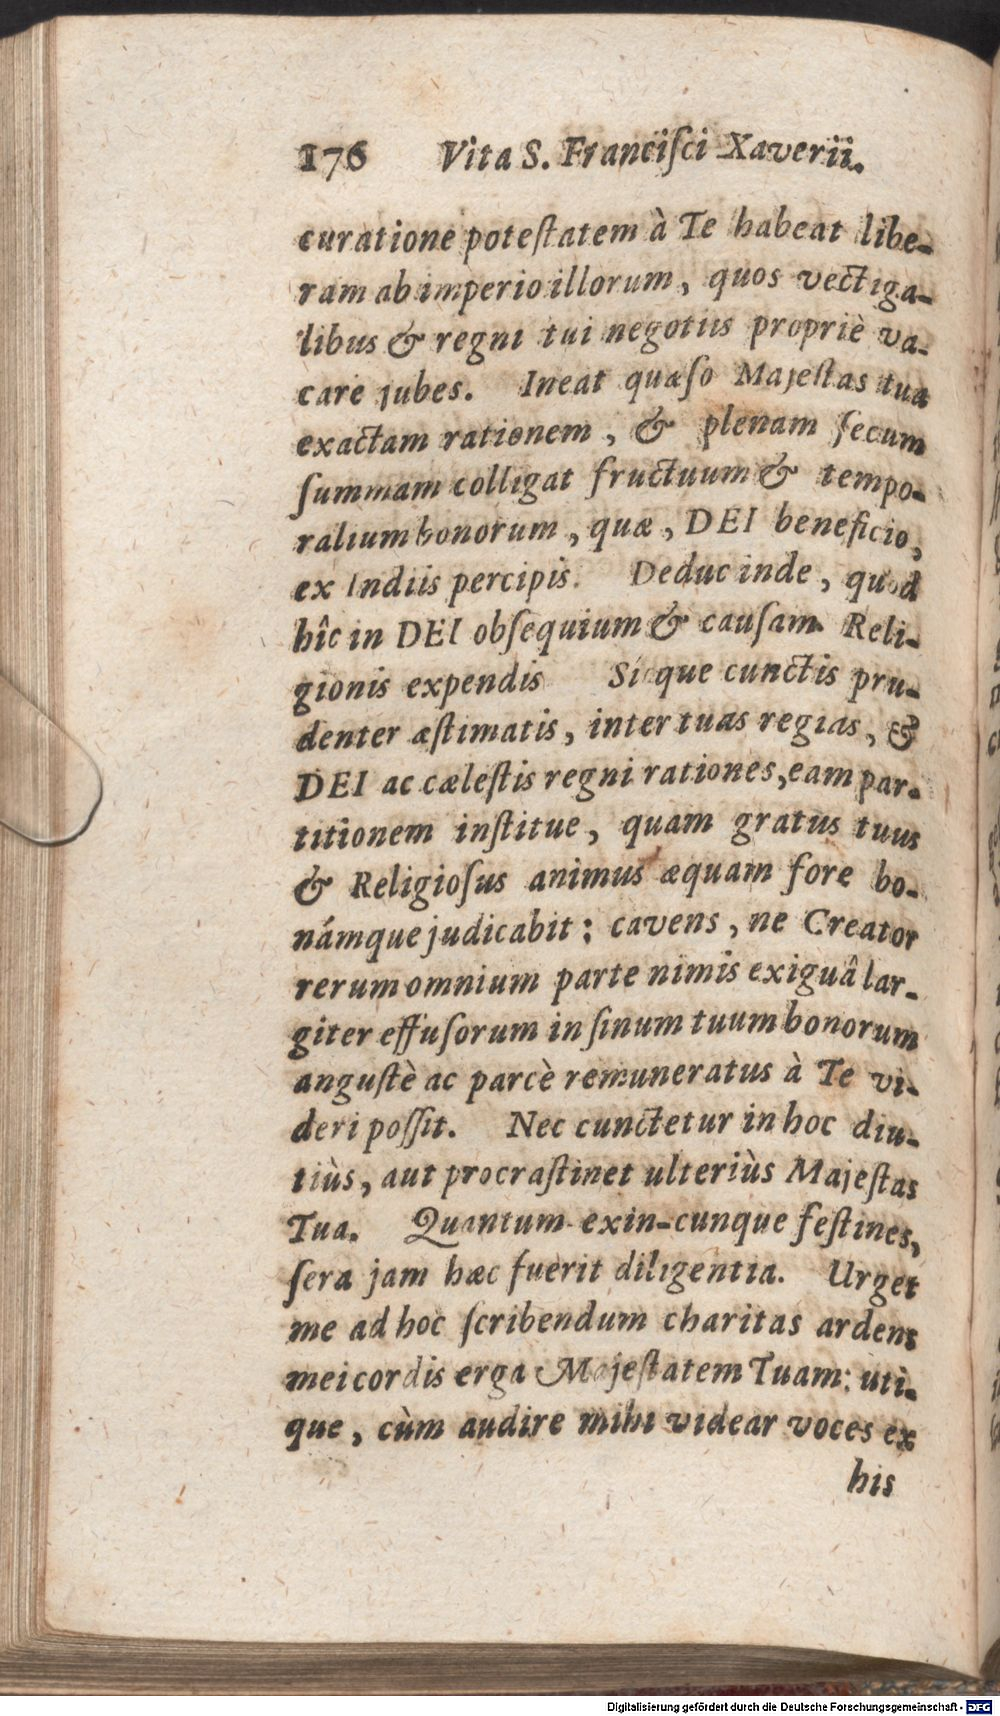 176 Vita S. Franciſci Xaverii.
curatione poteſtatem à Te habeat libe-
ram ab imperio illorum, quos vectiga-
libus & regni tui negotiis propriè va-
care jubes. Ineat quæſo Majeſtas tua
exactam rationem, & plenam ſecum
ſummam colligat fructuum & tempo-
ralium bonorum, quæ, DEI beneficio,
ex Indiis percipis. Deduc inde, quod
hîc in DEI obſequium & cauſam Reli-
gionis expendis Sicque cunctis pru-
denter æſtimatis, inter tuas regias, &
DEI ac cæleſtis regni rationes, eam par-
titionem inſtitue, quam gratus tuus
& Religioſus animus æquam fore bo-
námque judicabit; cavens, ne Creator
rerum omnium parte nimis exiguâ lar-
giter effuſorum in ſinum tuum bonorum
anguſtè ac parcè remuneratus à Te vi-
deri poſſit. Nec cunctetur in hoc diu-
tiùs, aut procraſtinet ulteriùs Majeſtas
Tua. Quantum exin-cunque feſtines,
ſera jam hæc fuerit diligentia. Urget
me ad hoc ſcribendum charitas ardens
mei cordis erga Majeſtatem Tuam: uti-
que, cùm audire mihi videar voces ex
his
Digitalisierung gefördert durch die Deutsche Forschungsgemeinschaft - DFG